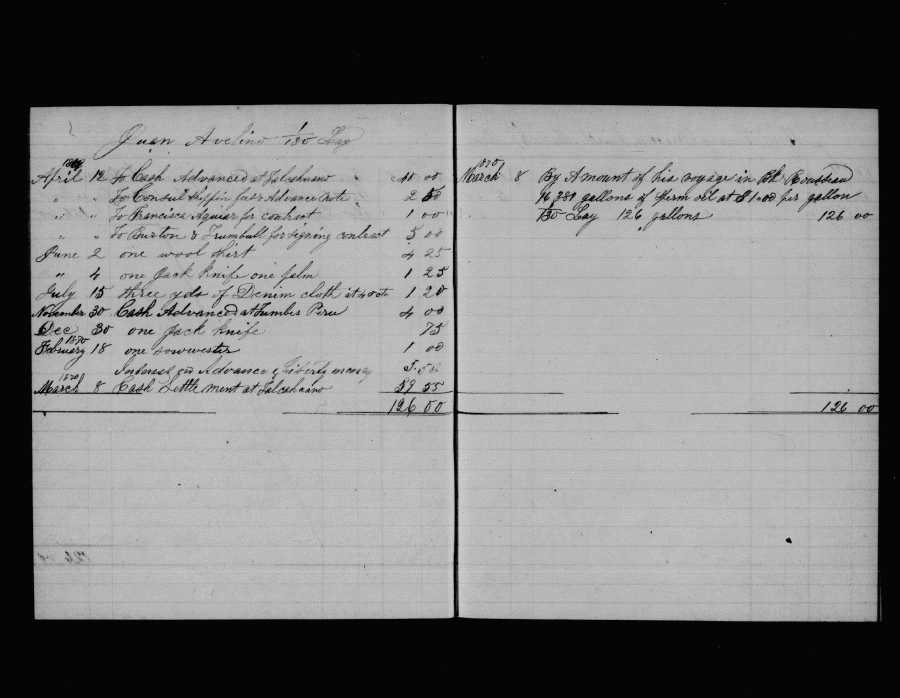 Juan Avelino 1/130 Lay
1869
April 12 To Cash Advanced at Talcahuano 41 00
" " To Consul Shippin fees & Advance note 2 50
" " To Francisca Aguier for contract 1 00
" " To Burton & Trumbull for signing contract 5 00
June 2 one wool shirt 4 25
" 4 one Jack knife one palm 1 25
July 15 three yds of Denim cloth at 40 cts 1 20
November 30 Cash Advanced at Tumbes Peru 4 00
Dec 30 one Jack knife 75
1870
February 18 one souwester 1 00
Interest on Advance & Liberty money 5.50
1870
March 8 Cash Settlement at Talcahuano 59 55
126 00
1870
March 8 By Amount of his voyage in Bk Rousseau
16,389 gallons of sperm oil at $1.00 per gallon
1/130 Lay 126 gallons 126 00
126 00